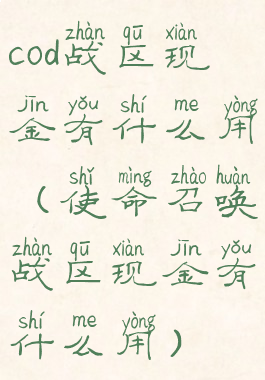 zhàn qū xiàn
cod战区现
jīn yǒu shí me yòng
金有什么用
shǐ mìng zhào huàn
(使命召唤
zhàn qū xiàn jīn yǒu
战区现金有
shí me yòng
什么用)